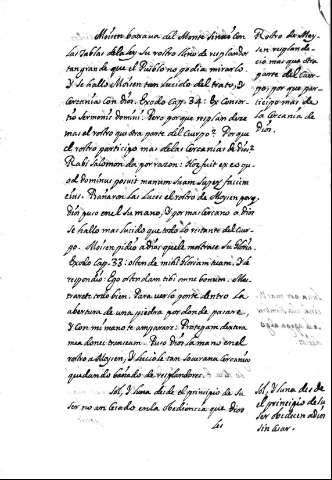 Moisen baxaua del Monte Sinaí con
las tablas de la ley su rostro lleno de resplandor
tan grande que el Pueblo no podia mirarlo.
Y se hallo Moisen tan lucido del trato, y
cercania con Dios. Exodo Cap. 34. Ex Consor
tio Sermonis domini. Pero porque resplandeze
mas el rostro que otra parte del Cuerpo? Porque
el rostro participo mas de las Cercanias de Dios.
Rabi Salomon da por razon: Hoc fuit ex eo qu
od dominus posuit manum suam super faciem
eius. Bañaron las luces el rostro de Moysen porq
Dios puso en el su mano, y por mas cercano a Dios
se hallo mas lucido que todo lo restante del cuer
po. Moisen pidio a Dios que le mostrase su gloria.
Exodo Cap. 33. ostende mihi gloriam tuam. Y le
respondió: Ego ostendam tibi omne bonum. Mos
trarete todo bien. Para verlo ponte dentro la
abertura de una piedra por donde pasare,
y con mi mano te amparare: Protegam dextera
mea donec transeam. Puso Dios la mano en el
rostro a Moysen, y lucióle tan soverana cercania
quedando bañado de resplandores.
Sol, y luna desde el principio de su
ser no an cesado en la obediencia que Dios
les
Rostro de Moy
sen resplande
ció mas que otra
parte del Cuer
po, por que par
ticipo mas de
la cercania de
Dios.
Sol, y luna desde
el principio de su
ser obedecen a Dios
sin cesar.